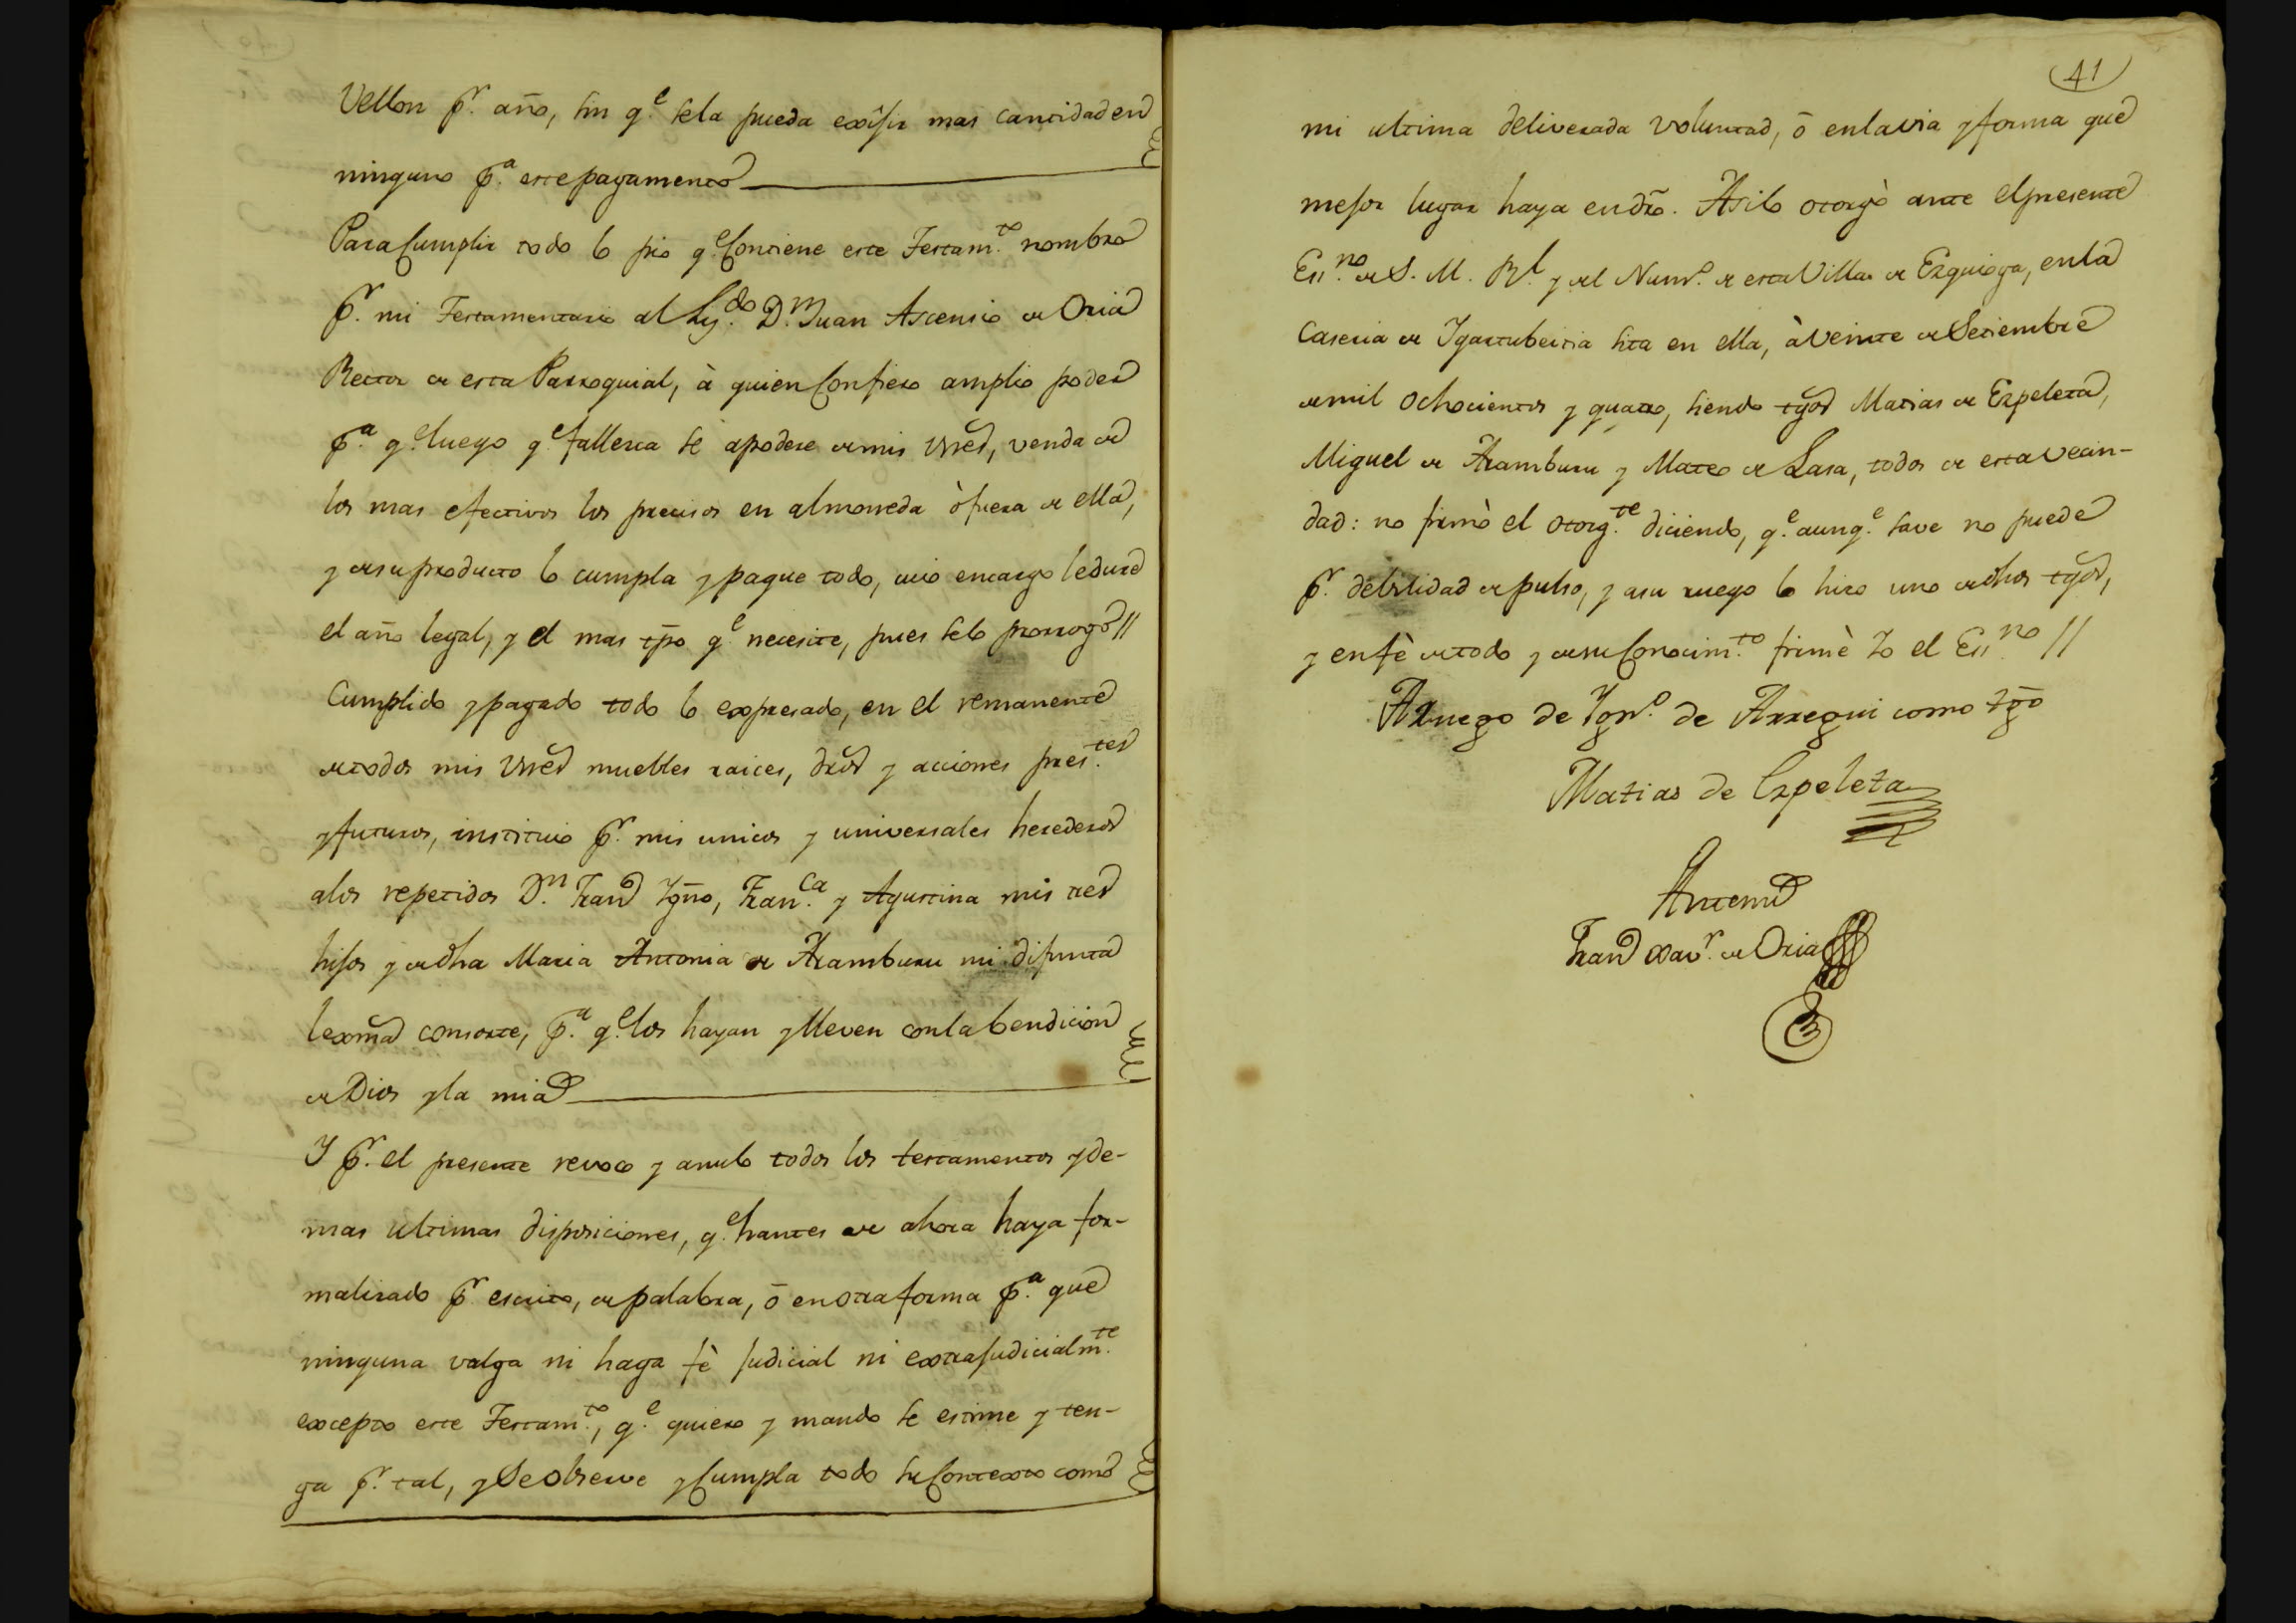 Vellon pr. año, sin q.e sela pueda exîsir mas cantidad en
ninguno p.a este pagamento
Para Cumplir todo lo pio q.e Contiene este Testam.to nombro
pr. mi Testamentario al Lz.do D.n Juan Ascensio de Oria
Rector de esta Parroquial, à quien Confiero amplio poder
p.a q.e luego q.e fallesca se apodere de mis vnes, venda de
los mas efectivos los precisos en almoneda ò fuera de ella,
y de su producto lo cumpla y pague todo, cuio encargo ledure
el año legal, y el mas tpo q.e necesite, pues selo prorrogo //
Cumplido y pagado todo lo expresado, en el remanente
de todos mis vnes muebles raices, dros y acciones pres.tes
y futuros, instituio pr. mis unicos y universales herederos
alos repetidos D.n Fran.co Ygno, Fran.ca y Agustina mis tres
hijos y de dha Maria Antonia de Aramburu mi difunta
lexma consorte, p.a q.e los hayan y lleven conla bendicion
de Dios y la mia
Y pr. el presente revoco y anulo todos los testamentos y de-
mas ultimas disposiciones, q.e hantes de ahora haya for-
malizado pr. escrito, de palabra, ō en otra forma p.a que
ninguna valga ni haga fè judicial ni extrajudicialm.te
excepto este Testam.to, q.e quiero y mando se estime y ten-
ga pr. tal, y Se observe y Cumpla todo su Contexto como
41
mi ultima deliverada voluntad, ō enlavia y forma que
mejor lugar haya endro. Asilo otorgò ante el presente
Ess.no de S. M. Rl. y del Num.o de esta Villa de Ezquioga, enla
Caseria de Ygartubeitia sita en ella, à Veinte de Setiembre
de mil ochocientos y quatro, siendo tgos Matias de Ezpeleta,
Miguel de Aramburu y Mateo de Lasa, todos de esta vecin-
dad: no firmò el otorg.te diciendo, q.e aunq.e save no puede
pr. debilidad de pulso, y asu ruego lo hizo uno de dhos tgos,
y enfè de todo y de su Conocim.to firmè Yo el Ess.no //
A ruego de Ygn.o de Arregui como tgo
Matias de Ezpeleta
Antemi
Fran.co Xav.r de Oria